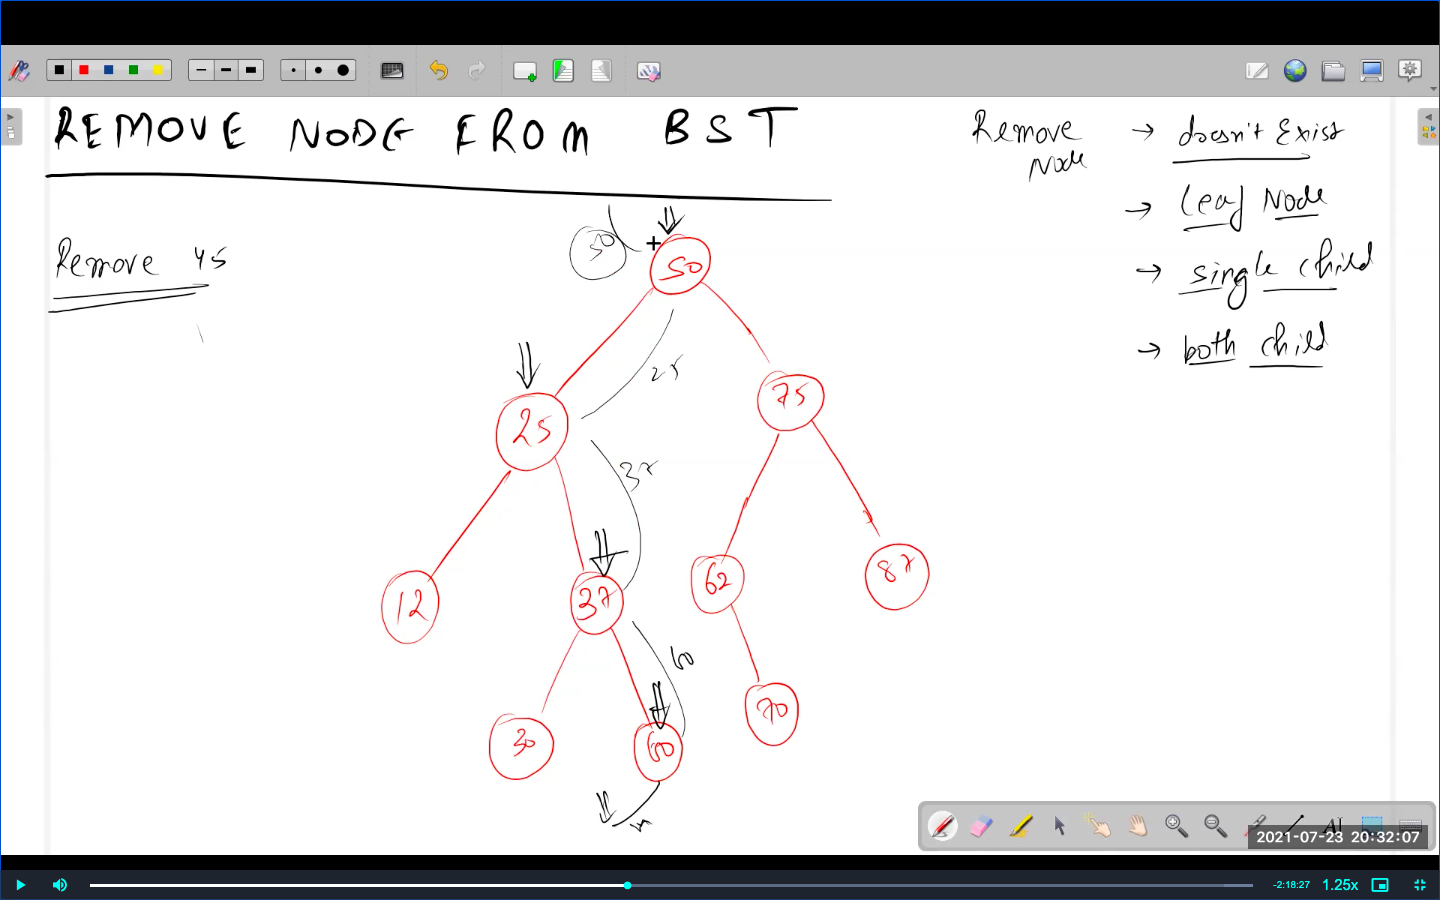 REMOVE NODE FROM BST
Remove Node → doesn't Exist
→ leaf Node
→ single child
→ both child
Remove 45
50
50
25
25
75
37
12
37
62
87
60
30
60
70
n
AI
2021-07-23 20:32:07
-2:18:27
1.25x